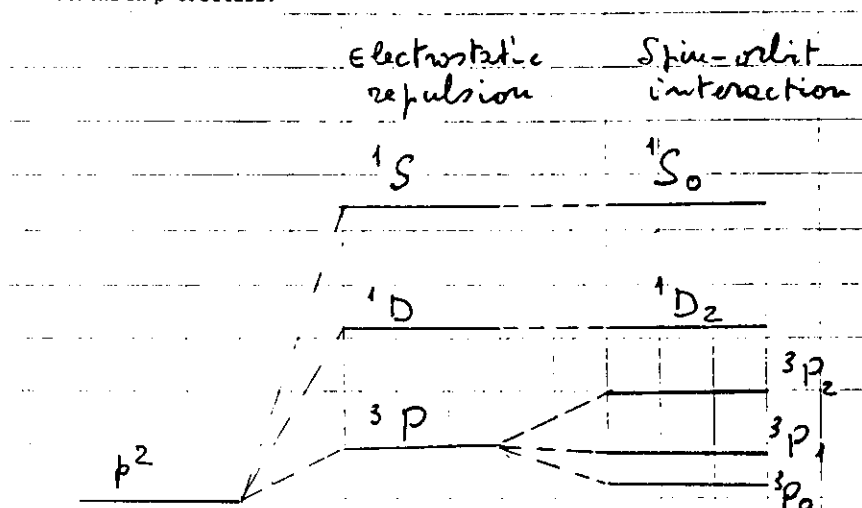 Electrostatic repulsion
Spin-orbit interaction
¹S
¹S₀
¹D
¹D₂
³P₂
³P
³P₁
p²
³P₀